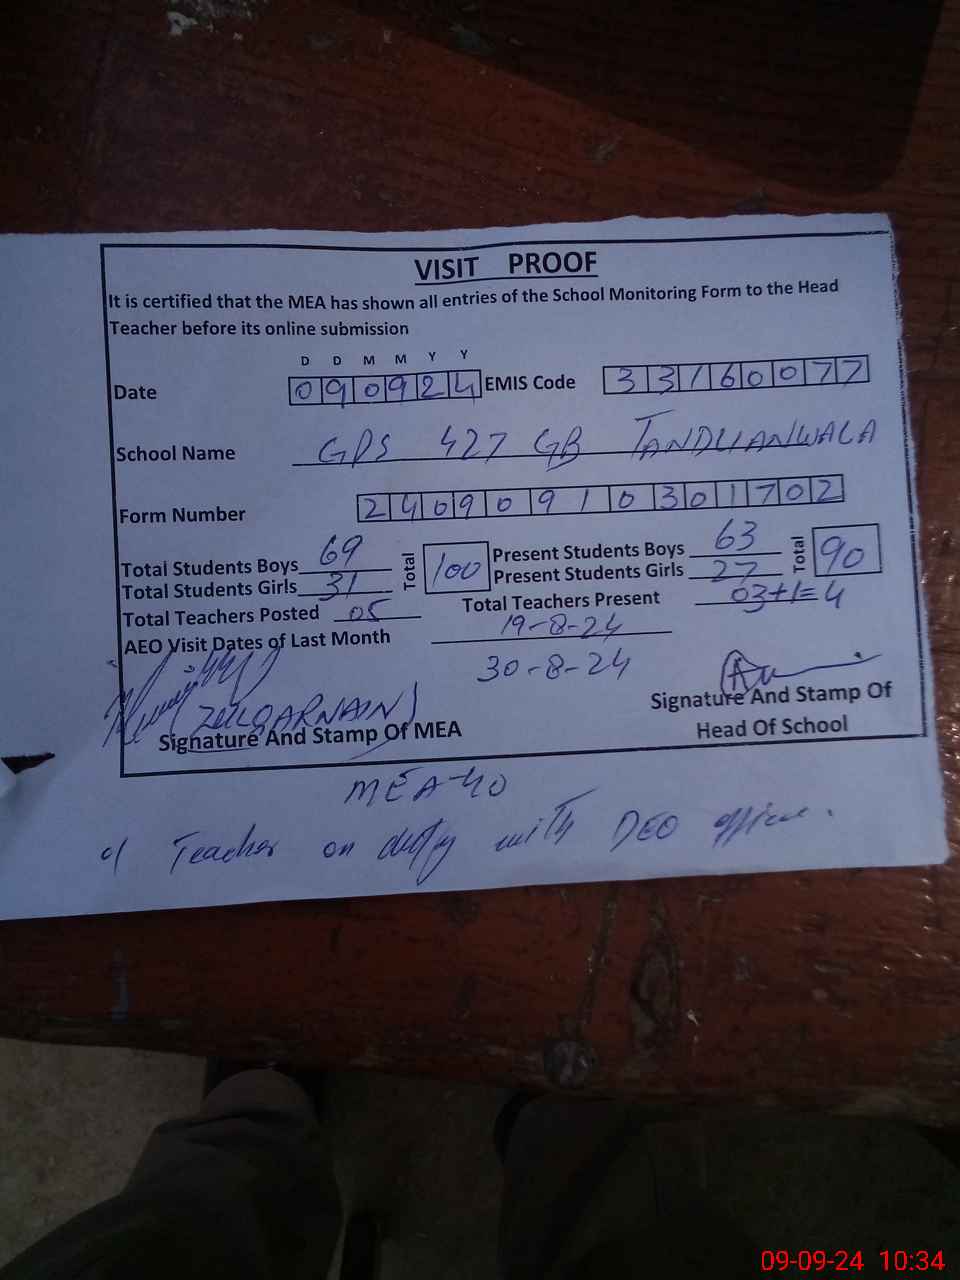 VISIT PROOF
It is certified that the MEA has shown all entries of the School Monitoring Form to the Head
Teacher before its online submission
D D M M Y Y
Date 090924 EMIS Code 33160077
School Name GPS 427 GB TANDLIANWALA
Form Number 24090910301702
Total Students Boys 69 Total 100 Present Students Boys 63 Total 90
Total Students Girls 31 Present Students Girls 27
Total Teachers Posted 05 Total Teachers Present 03+1=4
AEO Visit Dates of Last Month 19-8-24
30-8-24
(ZULQARNAIN)
Signature And Stamp Of MEA Signature And Stamp Of
Head Of School
MEA-40
01 Teacher on duty with DEO office.
09-09-24 10:34